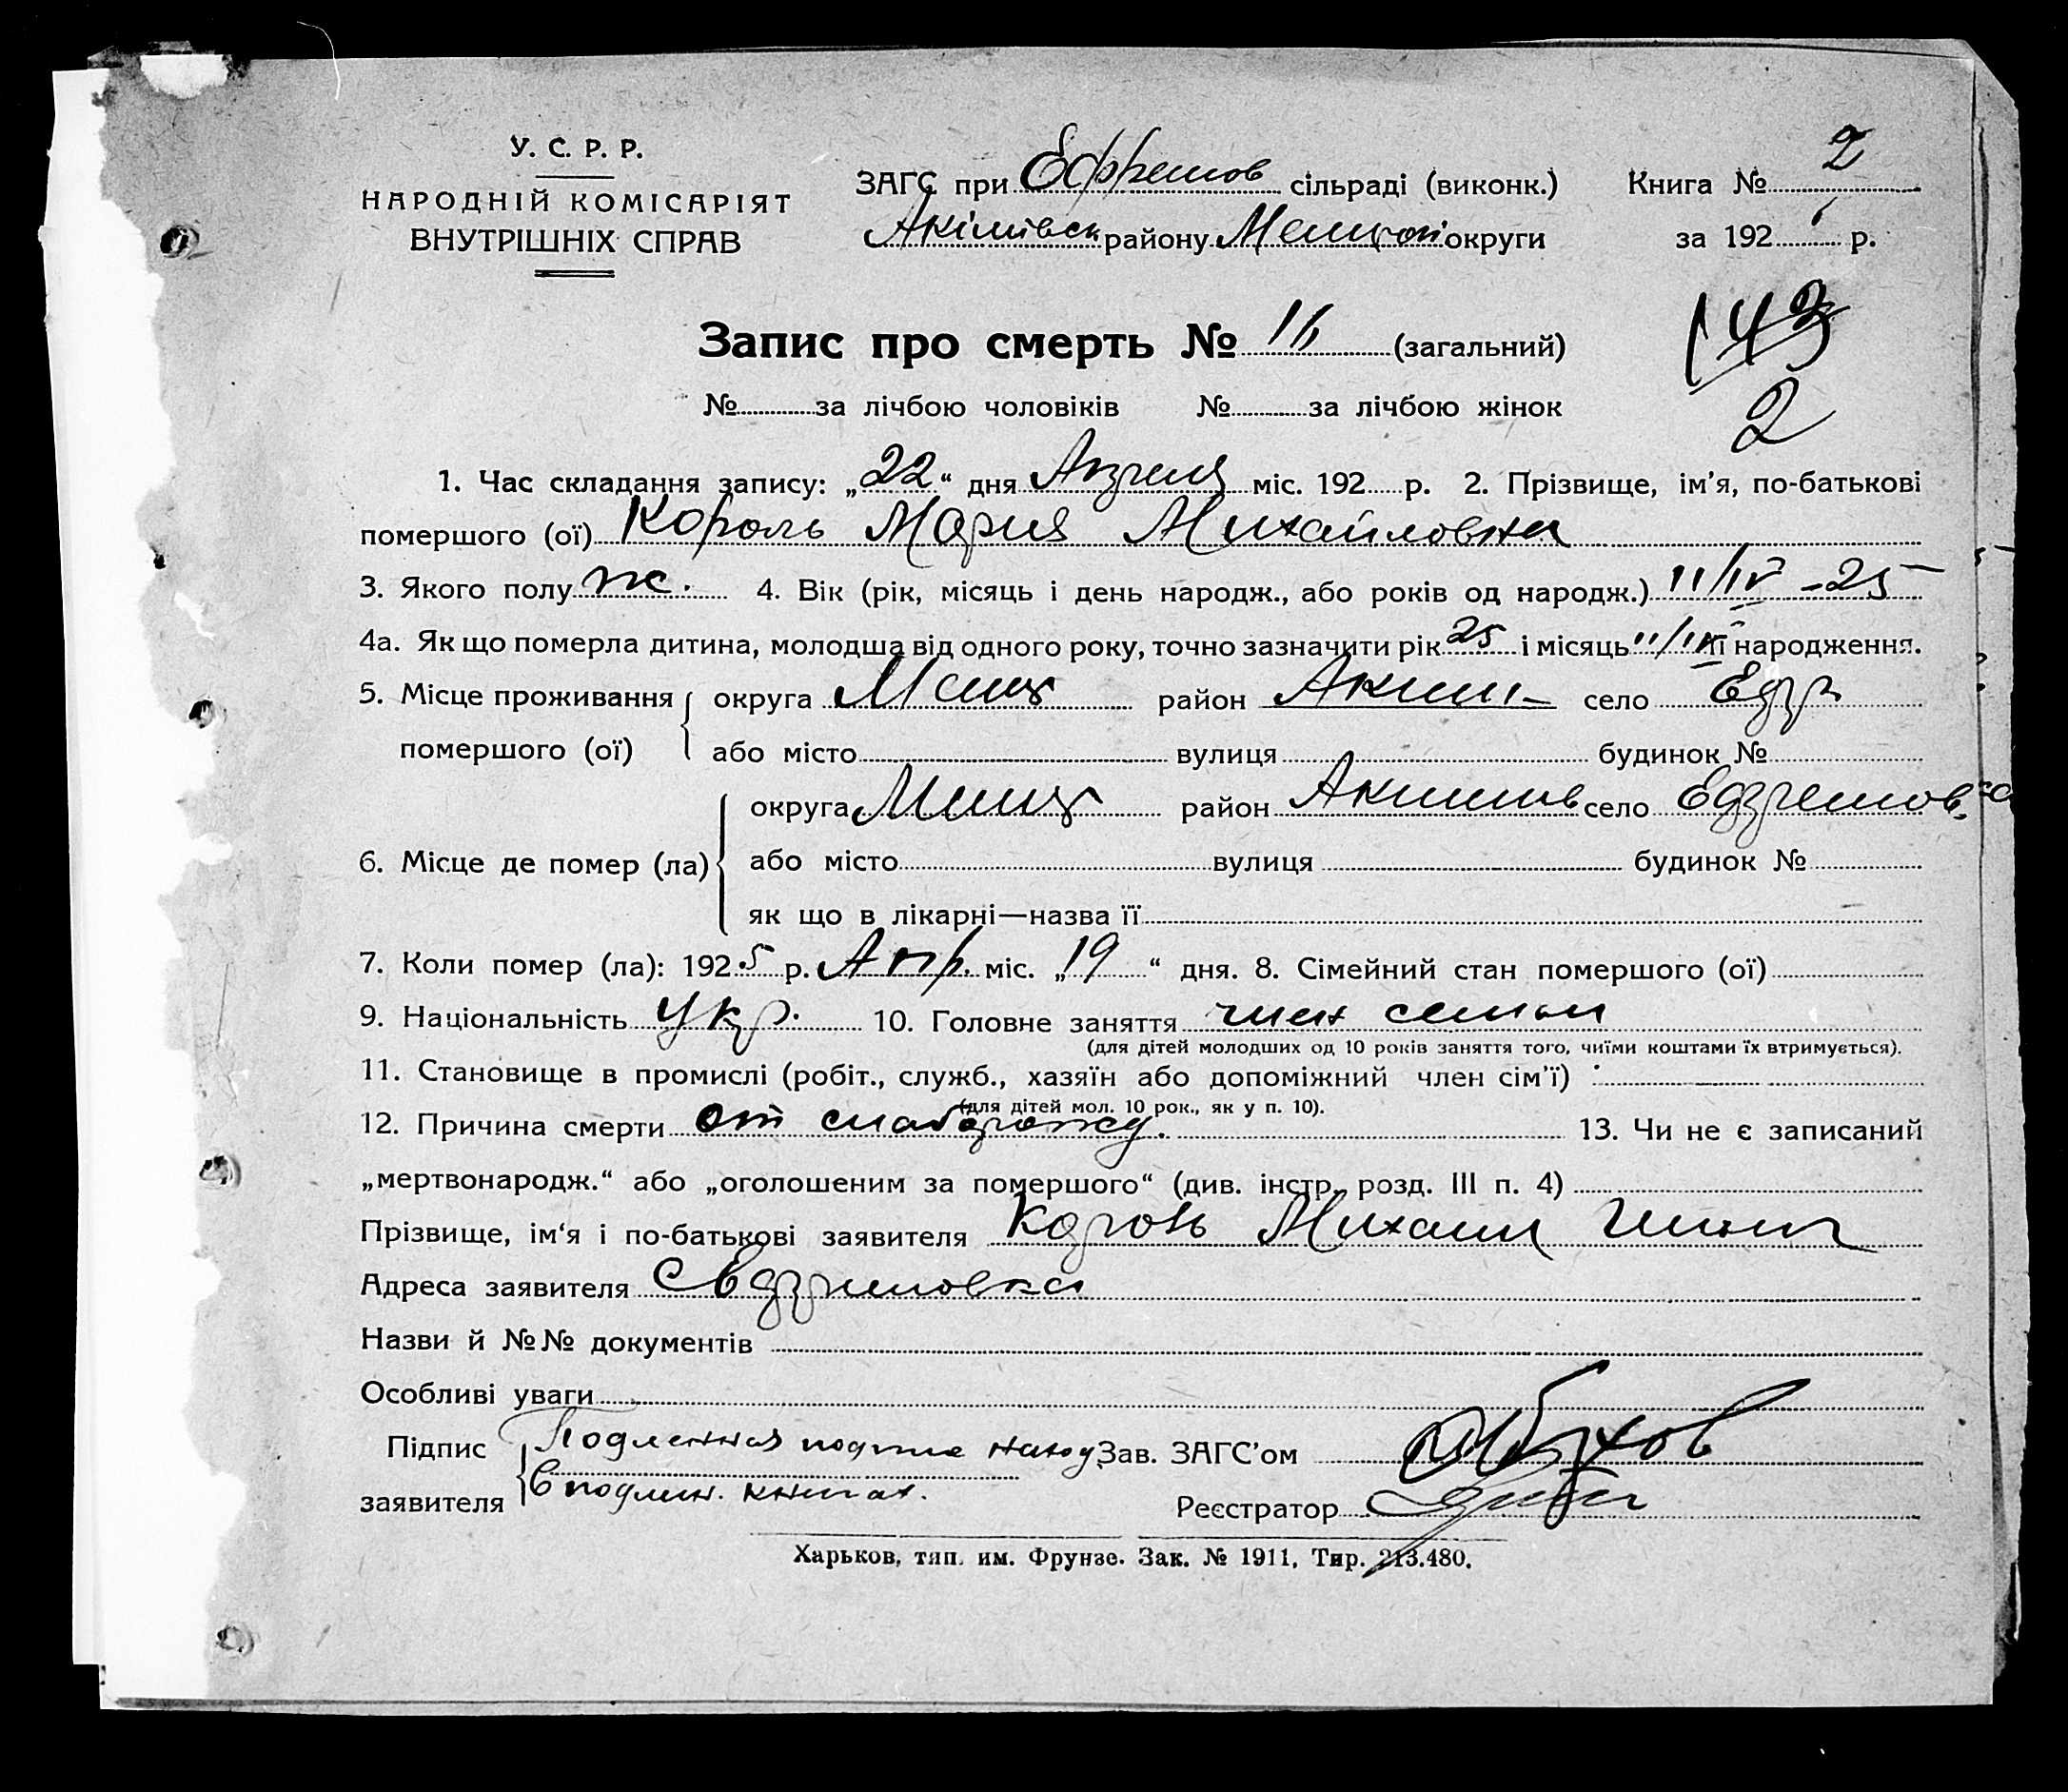 У. С. Р. Р.
НАРОДНІЙ КОМІСАРІЯТ
ВНУТРІШНІХ СПРАВ
ЗАГС при Ефремов сільраді (виконк.)
Акімівск. району Мелитоп. округи
Книга № 2
за 192 р.
Запис про смерть № 16 (загальний)
143
2
№ за лічбою чоловіків № за лічбою жінок
1. Час складання запису: „22“ дня Апреля міс. 192 р. 2. Прізвище, ім’я, по-батькові
помершого (ої) Король Мария Михайловна
3. Якого полу ж. 4. Вік (рік, місяць і день народж., або років од народж.) 11/IV - 25
4а. Як що померла дитина, молодша від одного року, точно зазначити рік 25 і місяць 11/IV її народження.
5. Місце проживання округа Мелит район Аким- село Ефр
помершого (ої) або місто вулиця будинок №
округа Мелит район Акимов село Ефремовка
6. Місце де помер (ла) або місто вулиця будинок №
як що в лікарні—назва її
7. Коли помер (ла): 1925 р. Апр. міс. „19“ дня. 8. Сімейний стан помершого (ої)
9. Національність Укр. 10. Головне заняття член семьи
(для дітей молодших од 10 років заняття того, чиїми коштами їх втримується).
11. Становище в промислі (робіт., служб., хазяїн або допоміжний член сім’ї)
(для дітей мол. 10 рок., як у п. 10).
12. Причина смерти от 13. Чи не є записаний
„мертвонародж.“ або „оголошеним за помершого“ (див. інстр. розд. III п. 4)
Прізвище, ім‘я і по-батькові заявителя Король Михаил
Адреса заявителя Ефремовка
Назви й №№ документів
Особливі уваги
Підпис Подленная подпис наход Зав. ЗАГС’ом
заявителя в подлин. книгах. Реєстратор
Харьков, тип. им. Фрунзе. Зак. № 1911, Тир. 213.480.